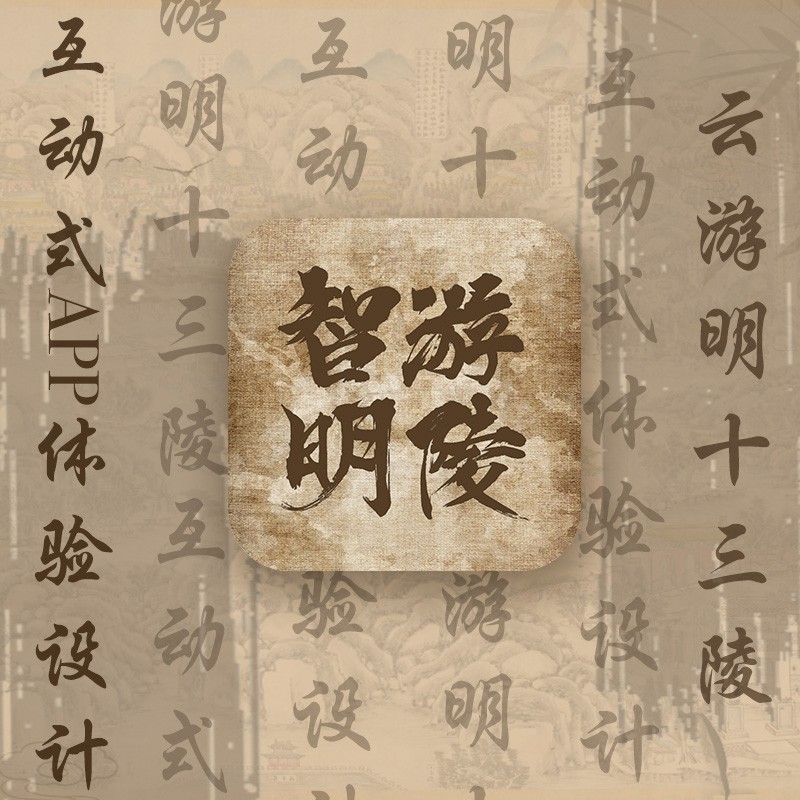 云游明十三陵
互动式体验设计
明十
游明
智游
明陵
互动
验设
游明十三陵互动式
互动式APP体验设计